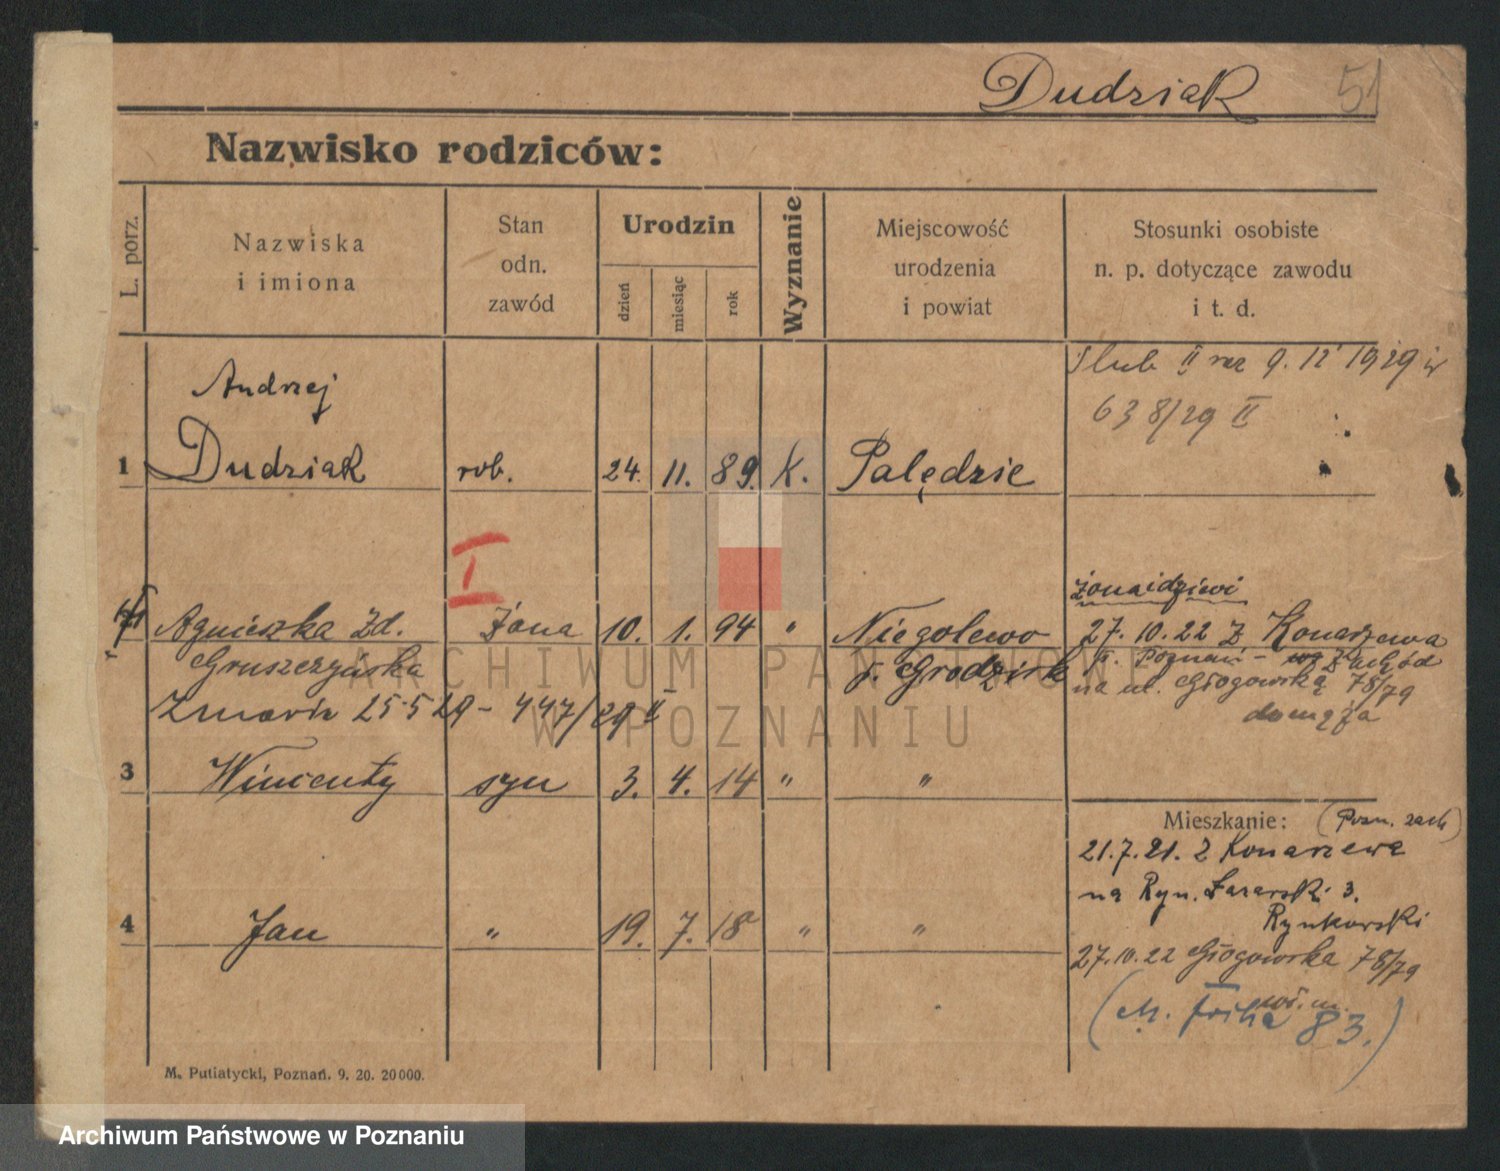 Dudziak 51
Nazwisko rodziców:
L. porz.
Nazwiska
i imiona
Stan
odn.
zawód
Urodzin
dzień
miesiąc
rok
Wyznanie
Miejscowość
urodzenia
i powiat
Stosunki osobiste
n. p. dotyczące zawodu
i t. d.
Ślub II raz 9. 12 1929 w
638/29 II
Andrzej
1 Dudziak rob. 24. 11. 89. K. Palędzie
I
Agnieszka Zd. żona 10. 1. 94 " Niegolewo
Gruszczyńska p. Grodzisk
Zmarła 25.5 29 - 447/29 II
żona i dzieci
27. 10. 22 z Konarzewa
p. Poznań - Zachód
na ul. Głogowską 78/79
do męża
3 Wincenty syn 3. 4. 14 " "
4 Jan " 19. 7. 18 " "
Mieszkanie: (Pozn. zach)
21.7.21. z Konarzewa
na Ryn. Łazarski 3.
Rynkowski
27.10.22 Głogowska 78/79
83.)
M. Putiatycki, Poznań. 9. 20. 20000.
ARCHIWUM PAŃSTWOWE
W POZNANIU
Archiwum Państwowe w Poznaniu